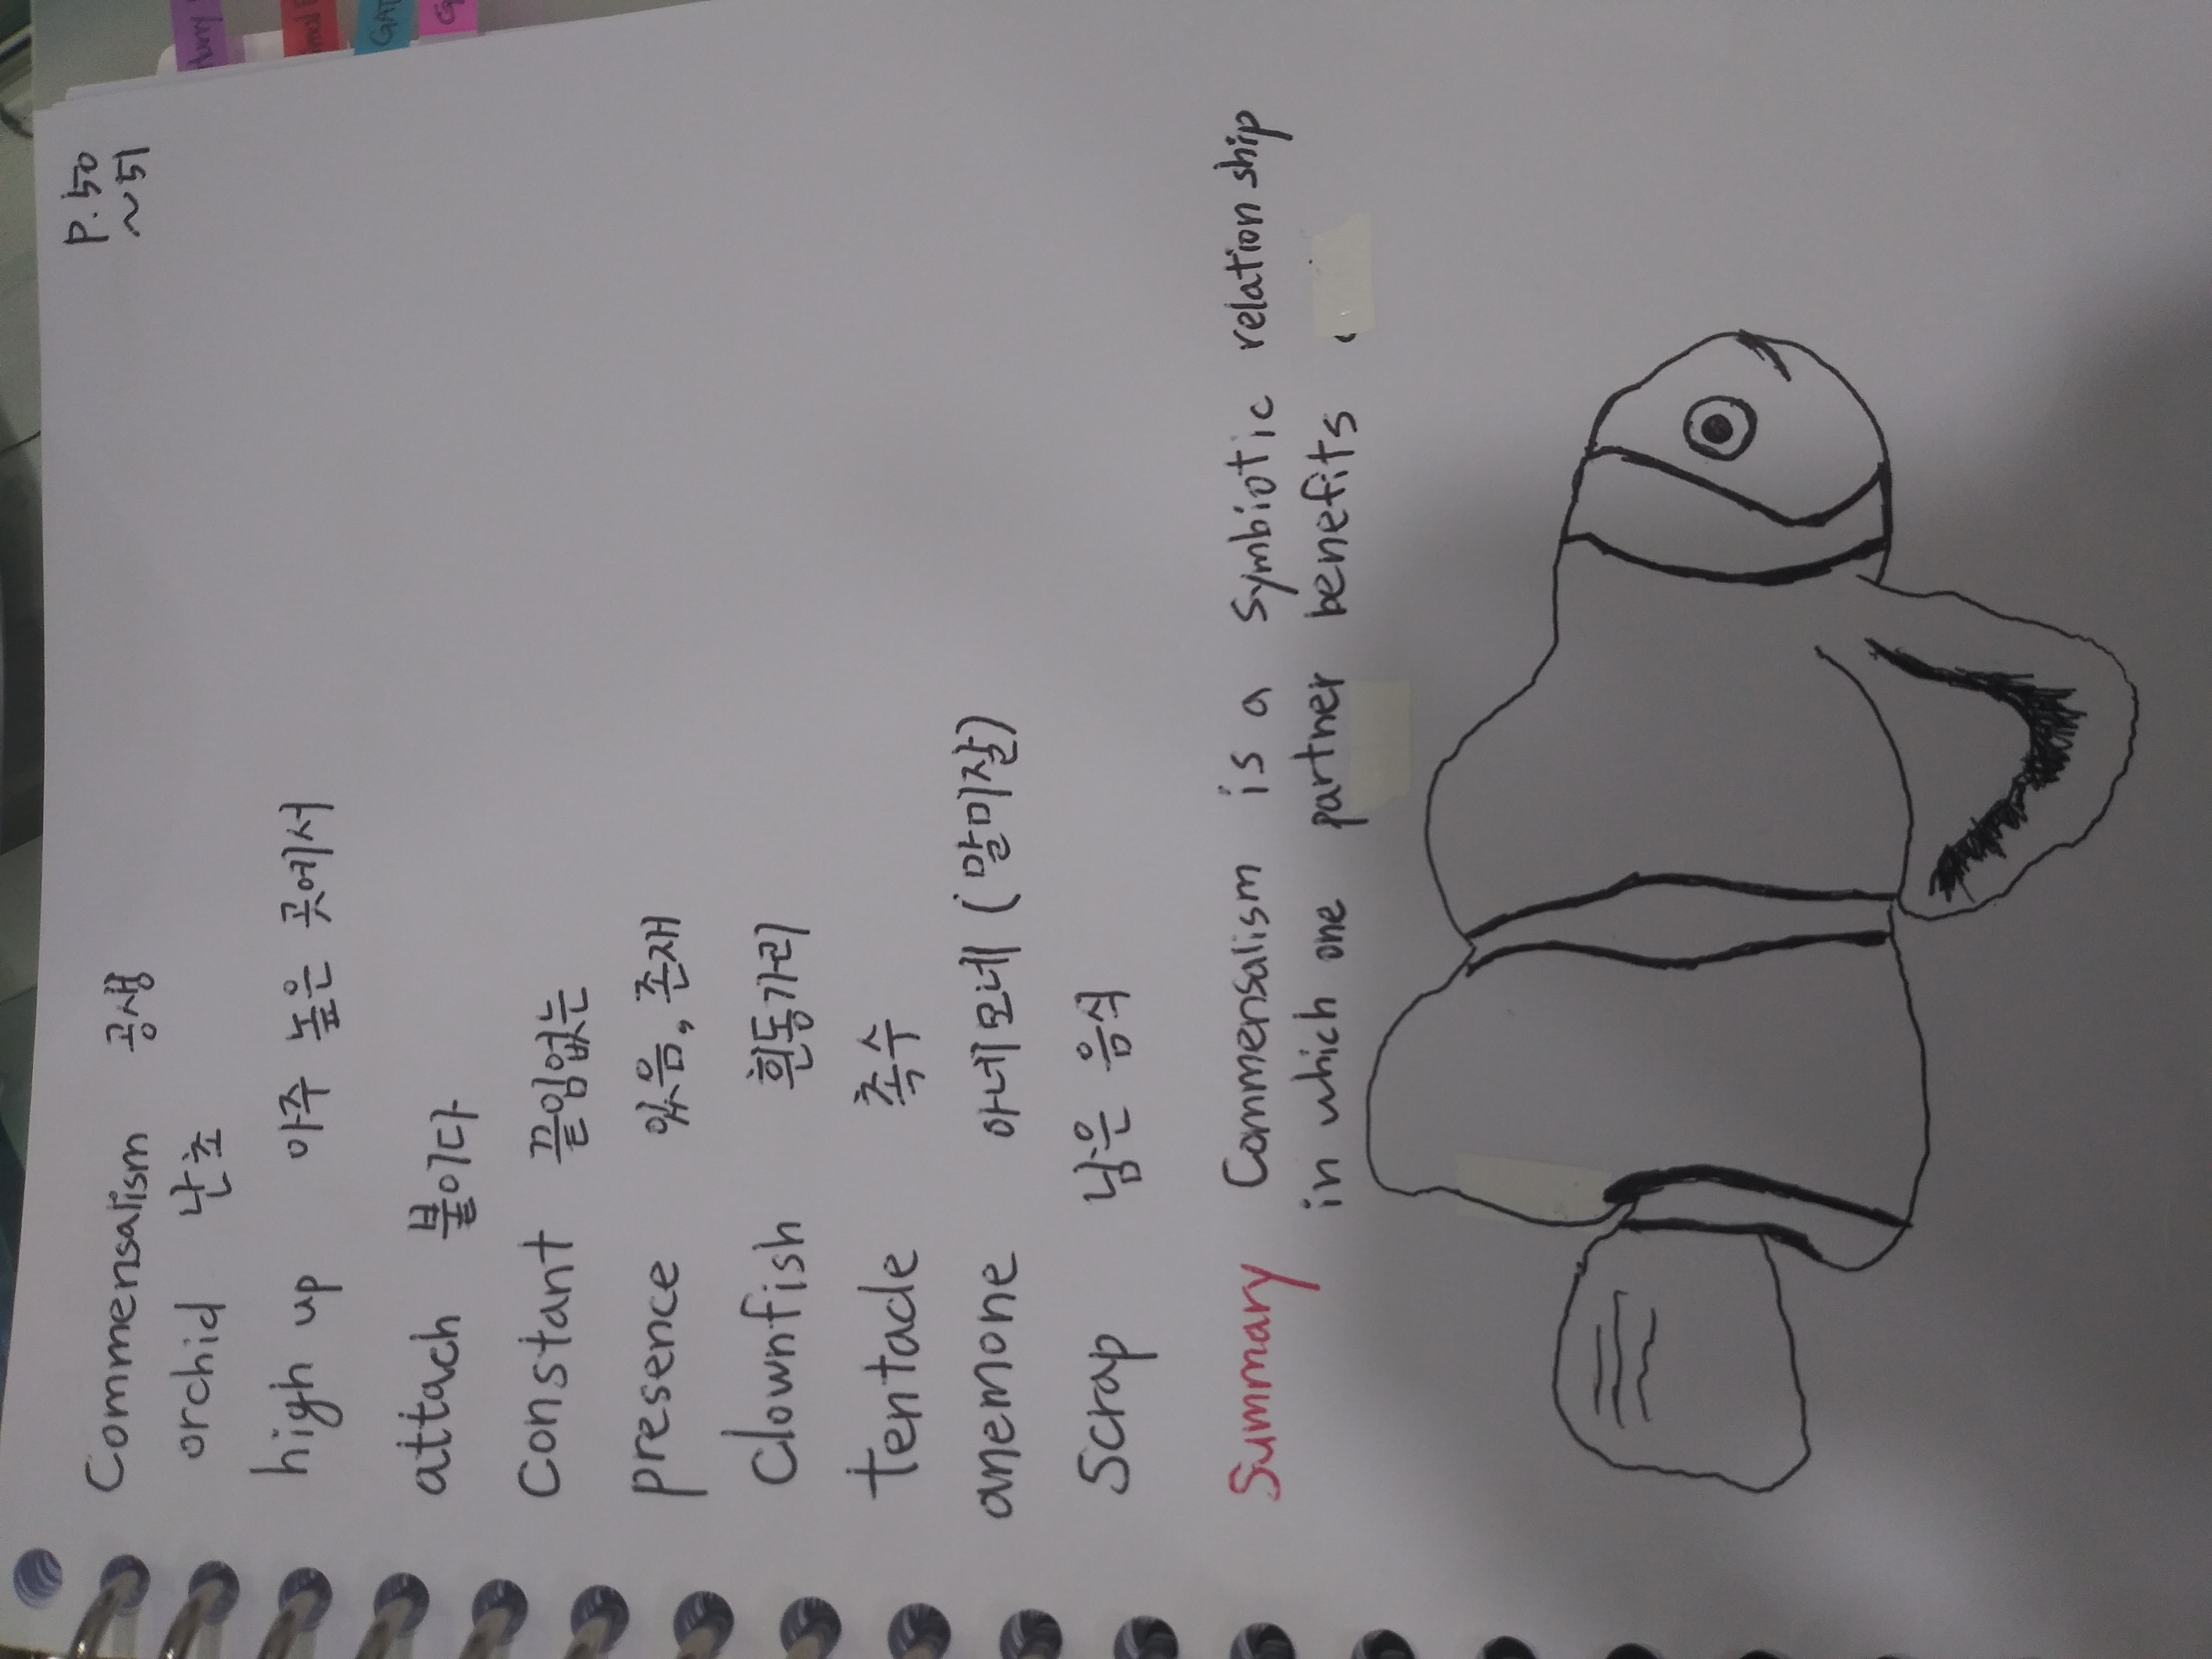 P.50
~51
Commensalism 공생
orchid 난초
high up 아주 높은 곳에서
attach 붙이다
Constant 끝임없는
presence 있음, 존재
Clownfish 흰동가리
tentacle 촉수
anemone 아네모네 (말미잘)
Scrap 남은 음식
Summary Commensalism is a symbiotic relation ship
in which one partner benefits.